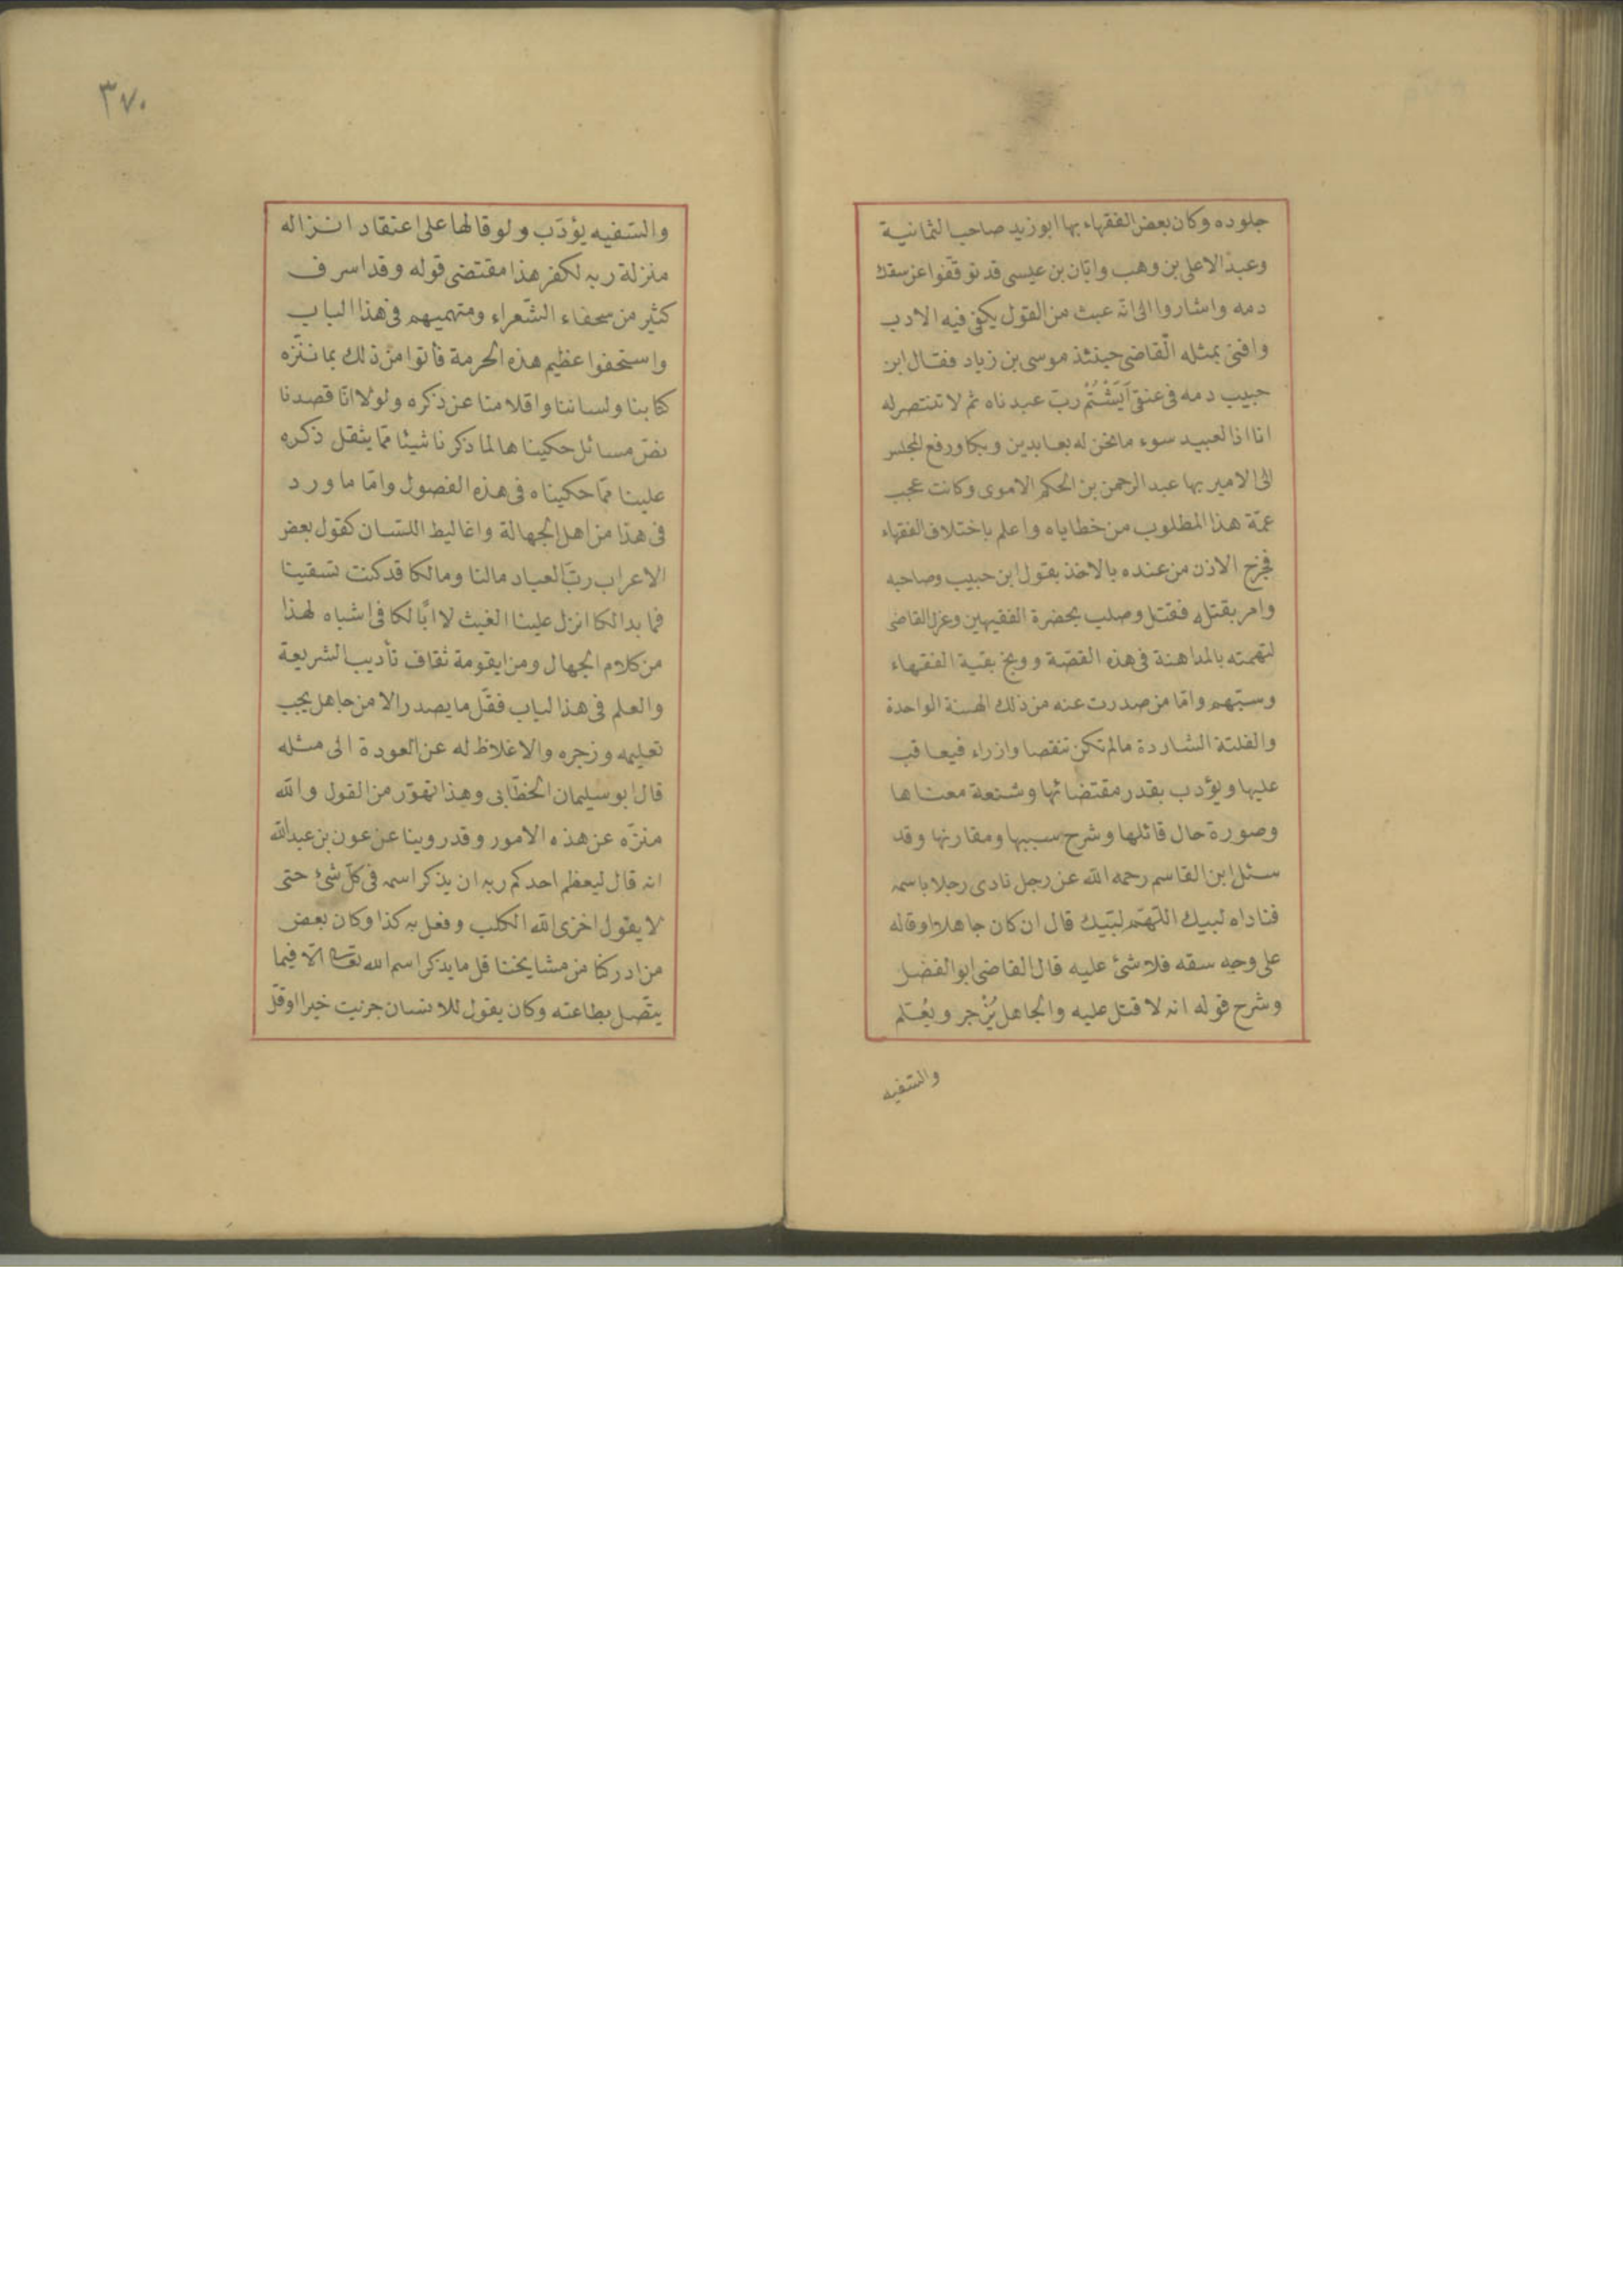 جلوده وكان بعض الفقهاء بها ابوزيد صاحب الثمانية
وعبد الاعلى بن وهب وابّان بن عيسى قد توقّفوا عن سفك
دمه واشاروا الى انّه عبث من القول يكفى فيه الادب
وافتى بمثله القاضى حينئذ موسى بن زياد فقال ابن
حبيب دمه فى عنقى اَيُشْتَمُ ربّ عبدناه ثم لا ننتصر له
انا اذا لعبيد سوء ما نحن له بعابدين وبكا ورفع المجلس
الى الامير بها عبد الرحمن بن الحكم الاموى وكانت عجب
عمّة هذا المطلوب من خطاياه واعلم باختلاف الفقهاء
فخرج الاذن من عنده بالاخذ بقول ابن حبيب وصاحبه
وامر بقتله فقتل وصلب بحضرة الفقيهين وعزل القاضى
لتهمته بالمداهنة فى هذه القصّة ووبخ بقية الفقهاء
وسبّهم وامّا من صدرت عنه من ذلك الهنة الواحدة
والفلتة الشاردة مالم تكن تنقصا وازراء فيعاقب
عليها ويؤدب بقدر مقتضائها وشنعة معناها
وصورة حال قائلها وشرح سببها ومقارنها وقد
سئل ابن القاسم رحمه الله عن رجل نادى رجلا باسمه
فناداه لبيك اللّهمّ لبّيك قال ان كان جاهلا او قاله
على وجه سفه فلا شئ عليه قال القاضى ابو الفضل
وشرح قوله انه لا قتل عليه والجاهل يُزْجر ويُعلّم
والسّفيه
٣٧٠
والسّفيه يؤدّب ولو قالها على اعتقاد انزاله
منزلة ربه لكفر هذا مقتضى قوله وقد اسرف
كثير من سخفاء الشّعراء ومتهميهم فى هذا الباب
واستخفوا عظيم هذه الحرمة فأتوا من ذلك بما ننزّه
كتابنا ولساننا واقلامنا عن ذكره ولولا انّا قصدنا
نصّ مسائل حكيناها لما ذكرنا شيئا ممّا يثقل ذكره
علينا ممّا حكيناه فى هذه الفصول وامّا ما ورد
فى هذا من اهل الجهالة واغاليط اللسان كقول بعض
الاعراب ربّ العباد مالنا ومالكا قد كنت تسقينا
فما بدا لكا انزل علينا الغيث لا ابًا لكا فى اشباه لهذا
من كلام الجهال ومن لم يقومه ثقاف تأديب الشريعة
والعلم فى هذا الباب فقلّ ما يصدر الا من جاهل يجب
تعليمه وزجره والاغلاظ له عن العودة الى مثله
قال ابو سليمان الخطّابى وهذا تهوّر من القول والله
منزّه عن هذه الامور وقد روينا عن عون بن عبد الله
انه قال ليعظم احدكم ربه ان يذكر اسمه فى كلّ شئ حتى
لا يقول اخزى الله الكلب وفعل به كذا وكان بعض
من ادركنا من مشايخنا قل ما يذكر اسم الله تعالى الّا فيما
يتّصل بطاعته وكان يقول للانسان جزيت خيرا وقلّ